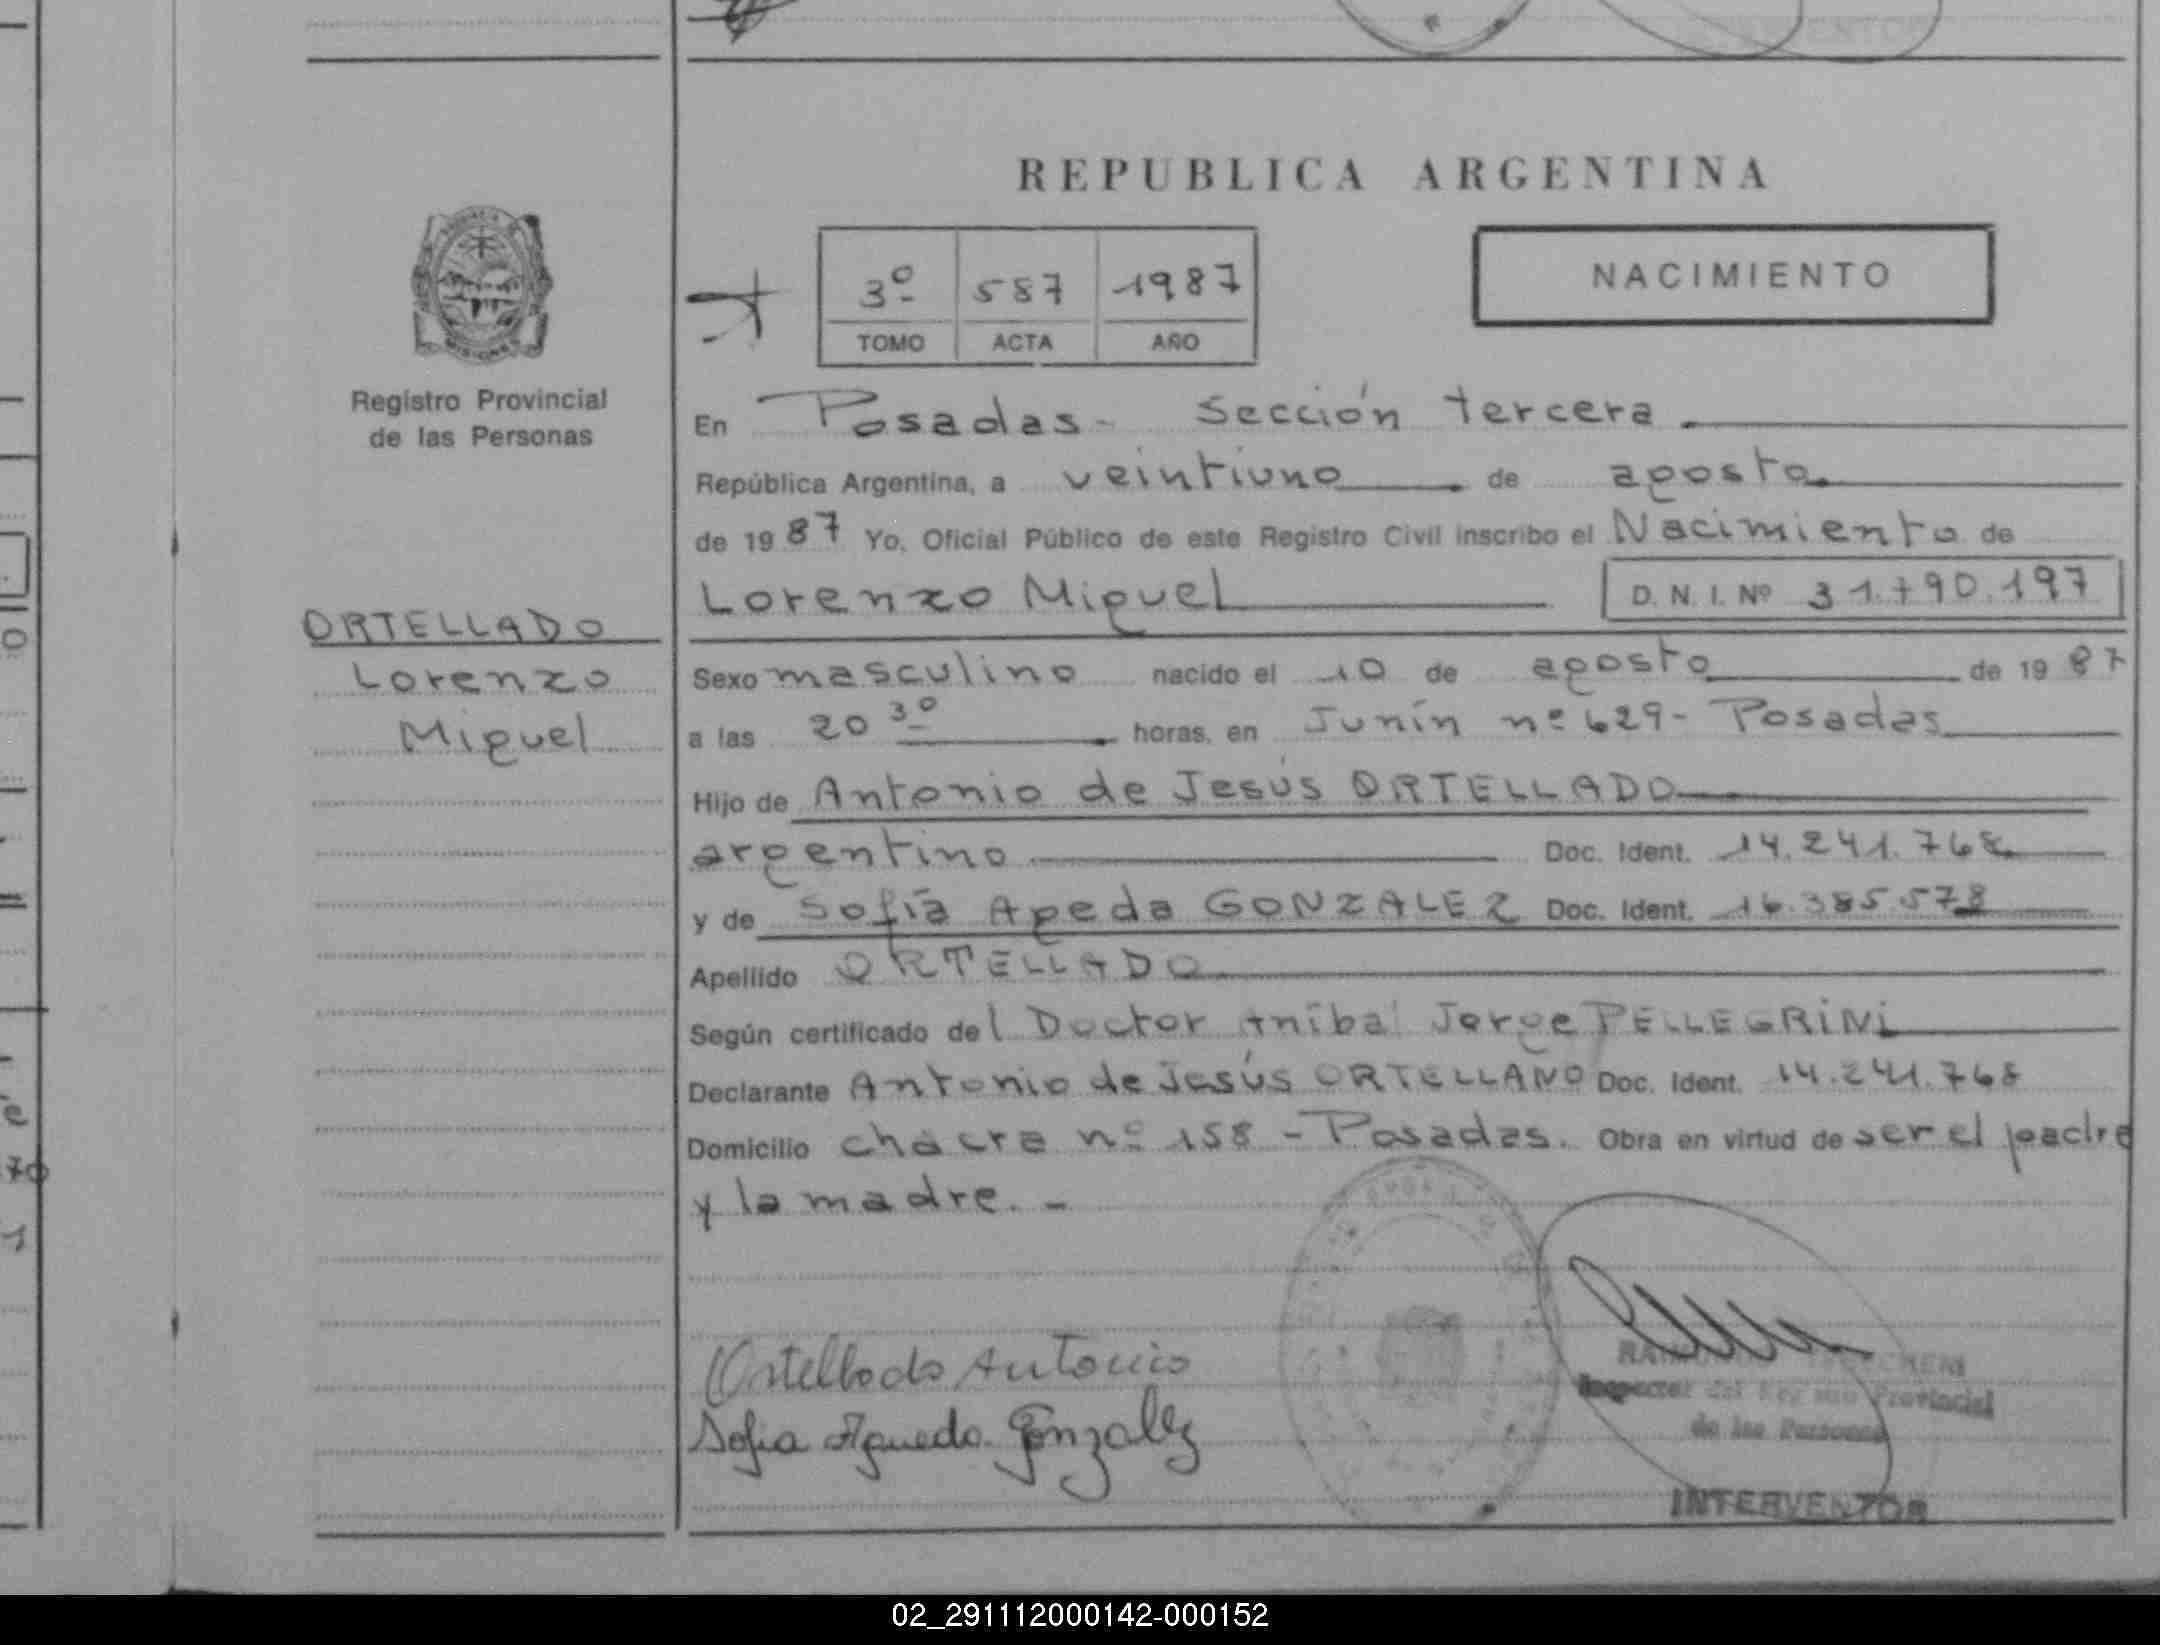 REPUBLICA ARGENTINA
3º 587 1987
TOMO ACTA AÑO
NACIMIENTO
Registro Provincial
de las Personas
ORTELLADO
Lorenzo
Miguel
En Posadas - Sección tercera.
República Argentina, a veintiuno de agosto.
de 1987 Yo, Oficial Público de este Registro Civil inscribo el Nacimiento de
Lorenzo Miguel D. N. I. Nº 31.790.197
Sexo masculino nacido el 10 de agosto de 1987
a las 20 30 horas, en Junín nº 629 - Posadas
Hijo de Antonio de Jesús ORTELLADO
argentino Doc. Ident. 14.241.768
y de Sofía Ageda GONZALEZ Doc. Ident. 16.385.578
Apellido ORTELLADO
Según certificado del Doctor Aníbal Jorge PELLEGRiNi
Declarante Antonio de Jesús ORTELLANO Doc. Ident. 14.241.768
Domicilio chácra nº 158 - Posadas. Obra en virtud de ser el padre
y la madre. -
Ortellado Antonio
Sofia Agueda Gonzalez
Inspector del Provincial
de las Personas
INTERVENTOR
02_291112000142-000152